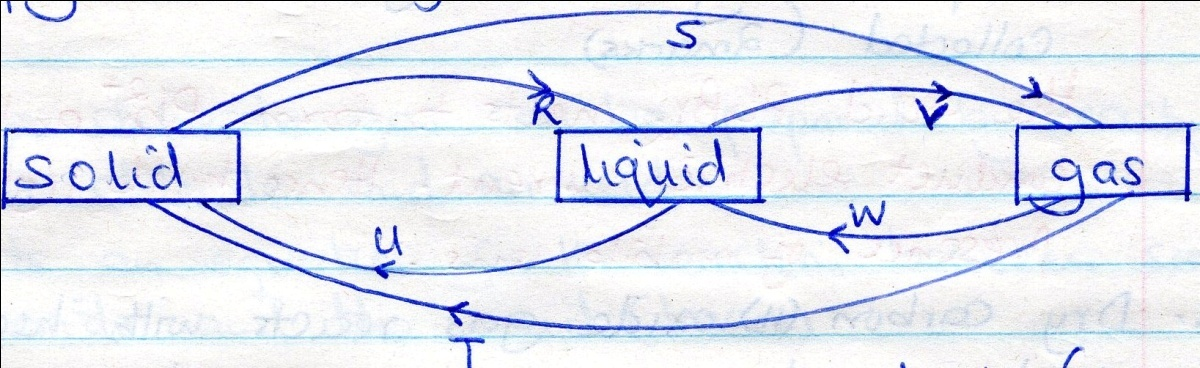 S
R
V
solid
liquid
gas
W
U
T